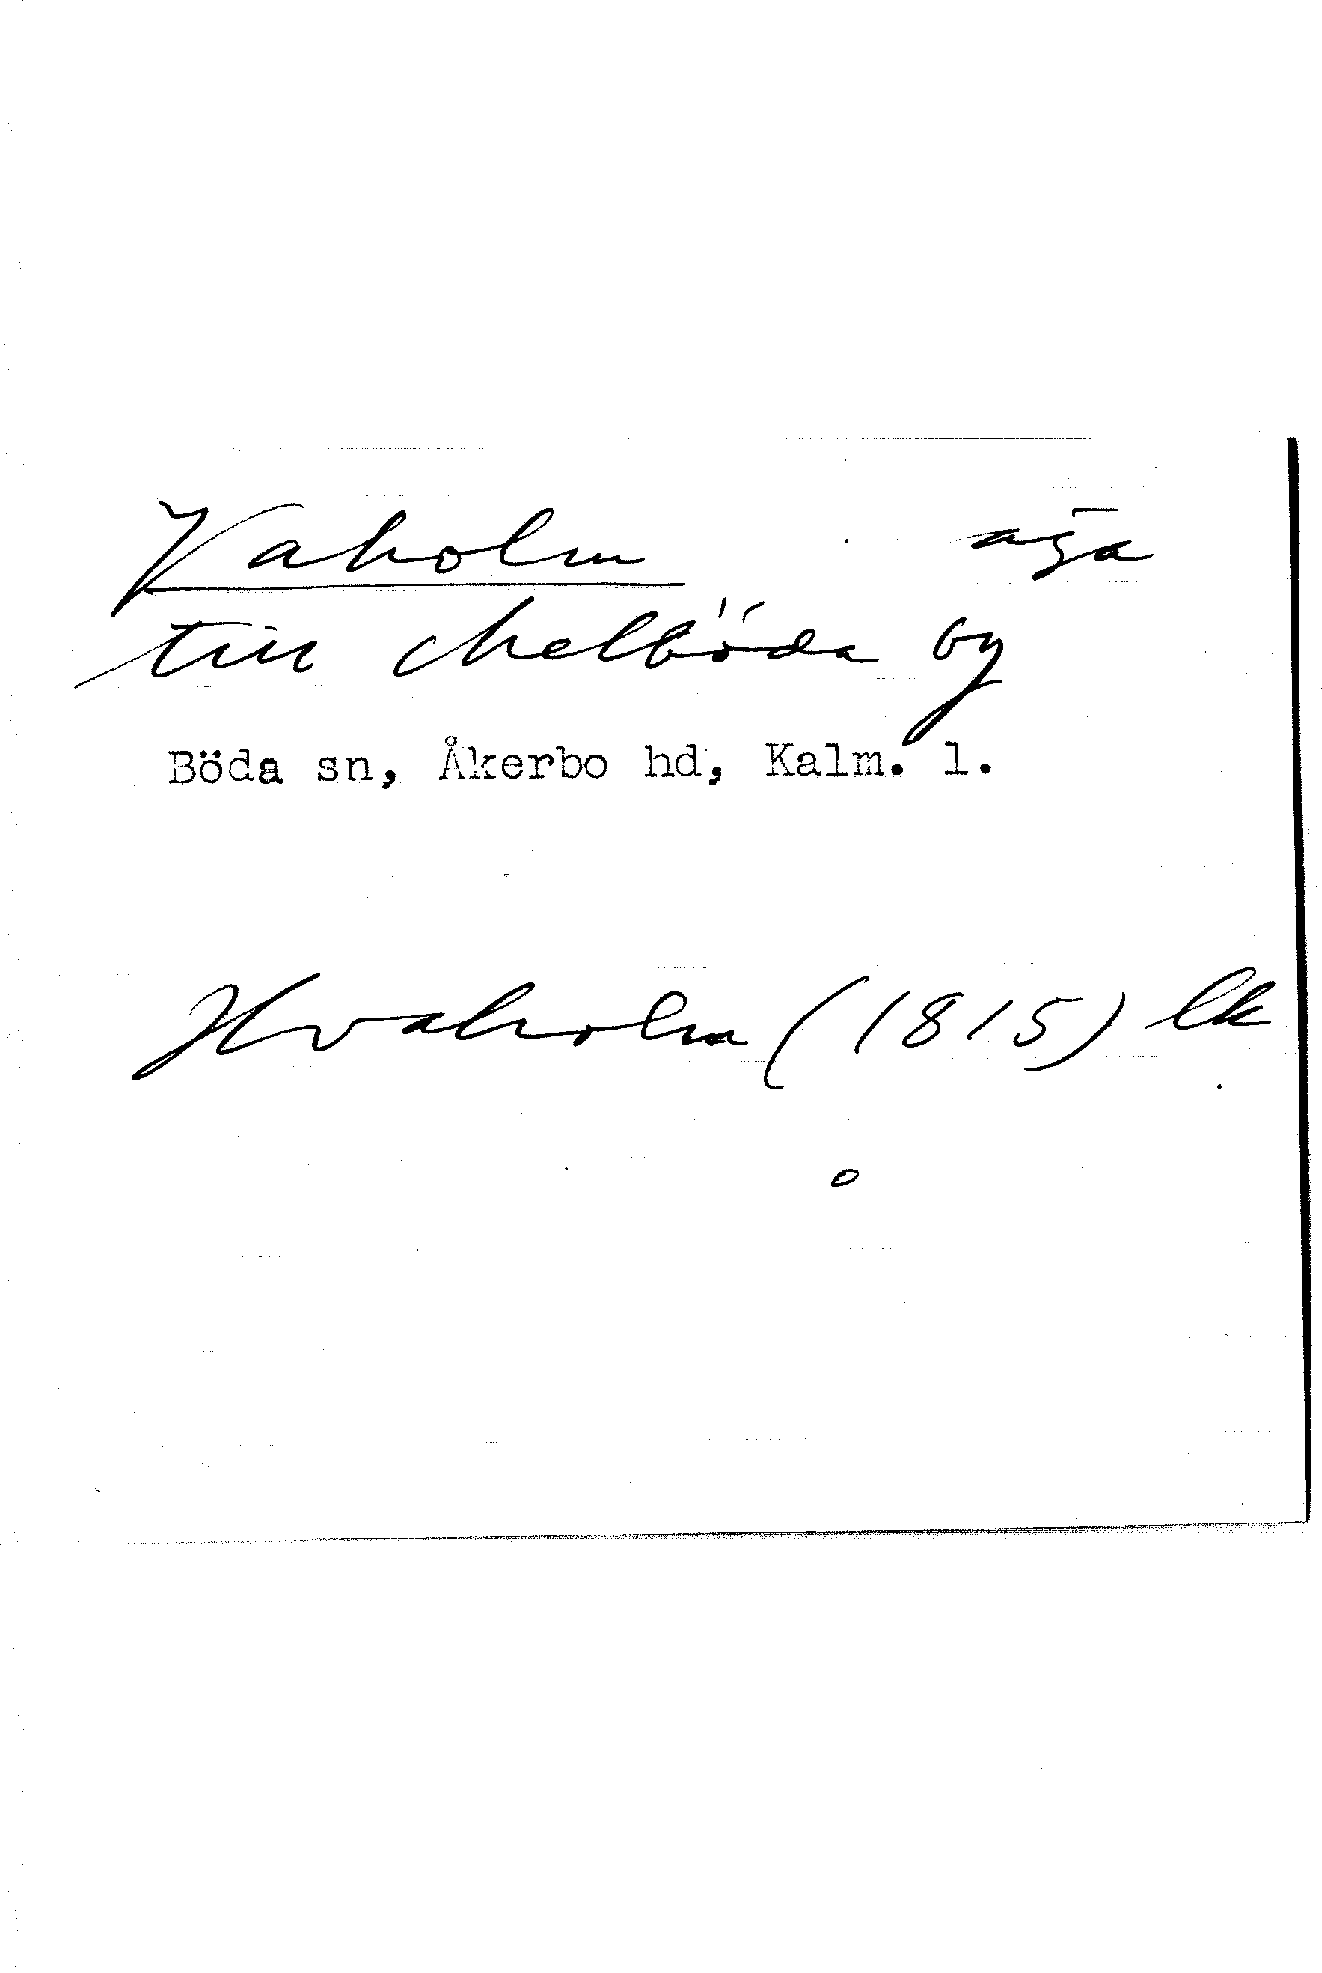 Vaholm äga
till Melböda by
Böda sn, Åkerbo hd, Kalm. l.
Hvaholm (1815) lk